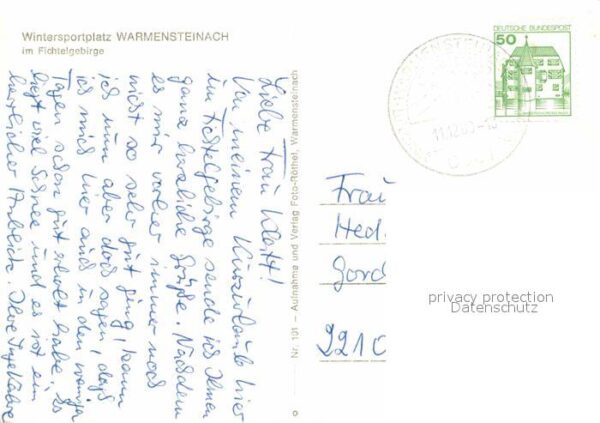 Wintersportplatz WARMENSTEINACH
im Fichtelgebirge
Liebe Frau Klatt!
Von meinem Kurzurlaub hier
im Fichtelgebirge sende ich Ihnen
ganz herzliche Grüße. Nachdem
es mir vorher immer noch
nicht so sehr gut ging, kann
ich nun aber doch sagen, daß
ich mich hier auch in den wenigen
Tagen schon gut erholt habe. Es
liegt viel Schnee und es ist ein
herrlicher Anblick. Ihre
Nr. 101 - Aufnahme und Verlag Foto-Röthel, Warmensteinach
DEUTSCHE BUNDESPOST
50
WARMENSTEIN
11.12.80-1
Frau
Hed.
Gord
221C
privacy protection
Datenschutz